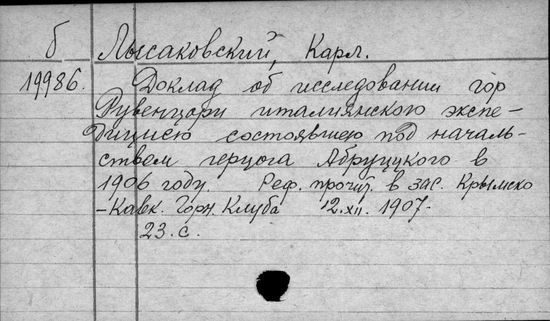 б Лысаковский, Карл.
19986. Доклад об исследовании гор
Рувенцори италиянскою экспе-
дициею состоявшею под началь-
ством герцога Абруцукого в
1906 году. Реф. прочит. в зас. Крымско
-Кавк. Горн. Клуба 12.XII. 1907.
23. с.